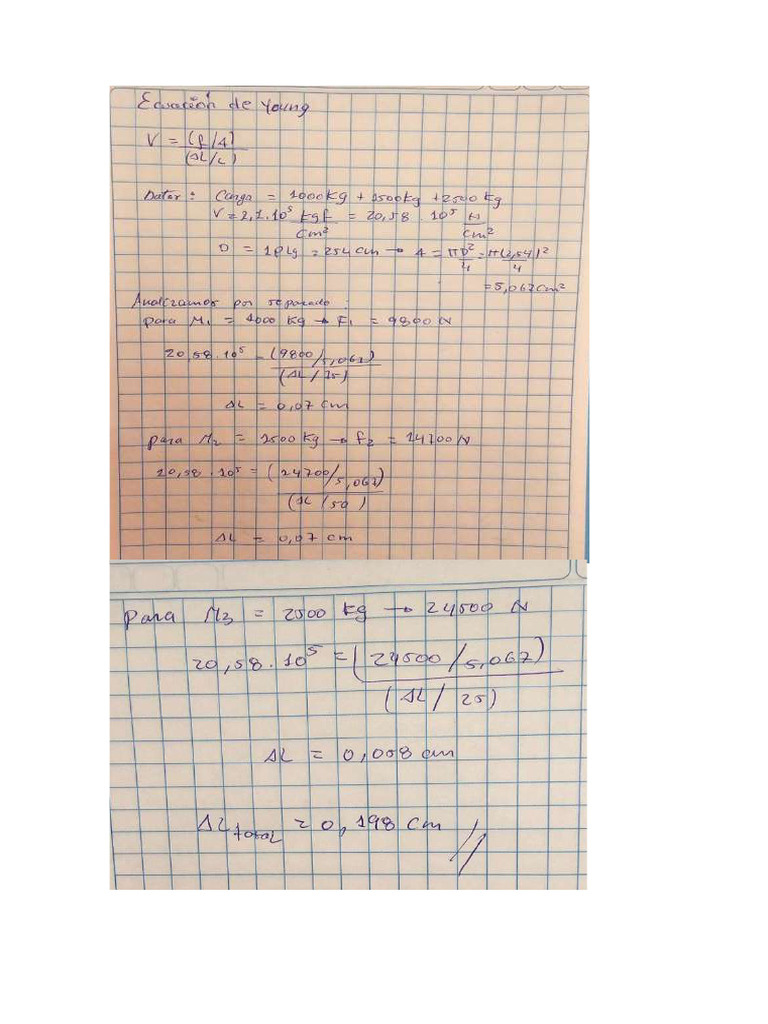 Ecuación de Young
V = (f/A)
(ΔL/L)
Datos: Carga = 1000kg + 1500kg + 2500kg
V = 2,1.10⁵ kgf = 20,58 . 10⁵ N
cm² cm²
D = 1Plg = 254 cm → A = πD² = π(2,54)²
4 4
= 5,067cm²
Analizamos por separado:
para M₁ = 1000 kg → F₁ = 9800 N
20,58.10⁵ = (9800/5,067)
(ΔL/25)
ΔL = 0,07 cm
para M₂ = 1500 kg → f₂ = 14700 N
20,58 . 10⁵ = (24700/5,067)
(ΔL/50)
ΔL = 0,07 cm
para M₃ = 2500 kg → 24500 N
20,58.10⁵ = (24500/5,067)
(ΔL/25)
ΔL = 0,058 cm
ΔL total = 0,198 cm //